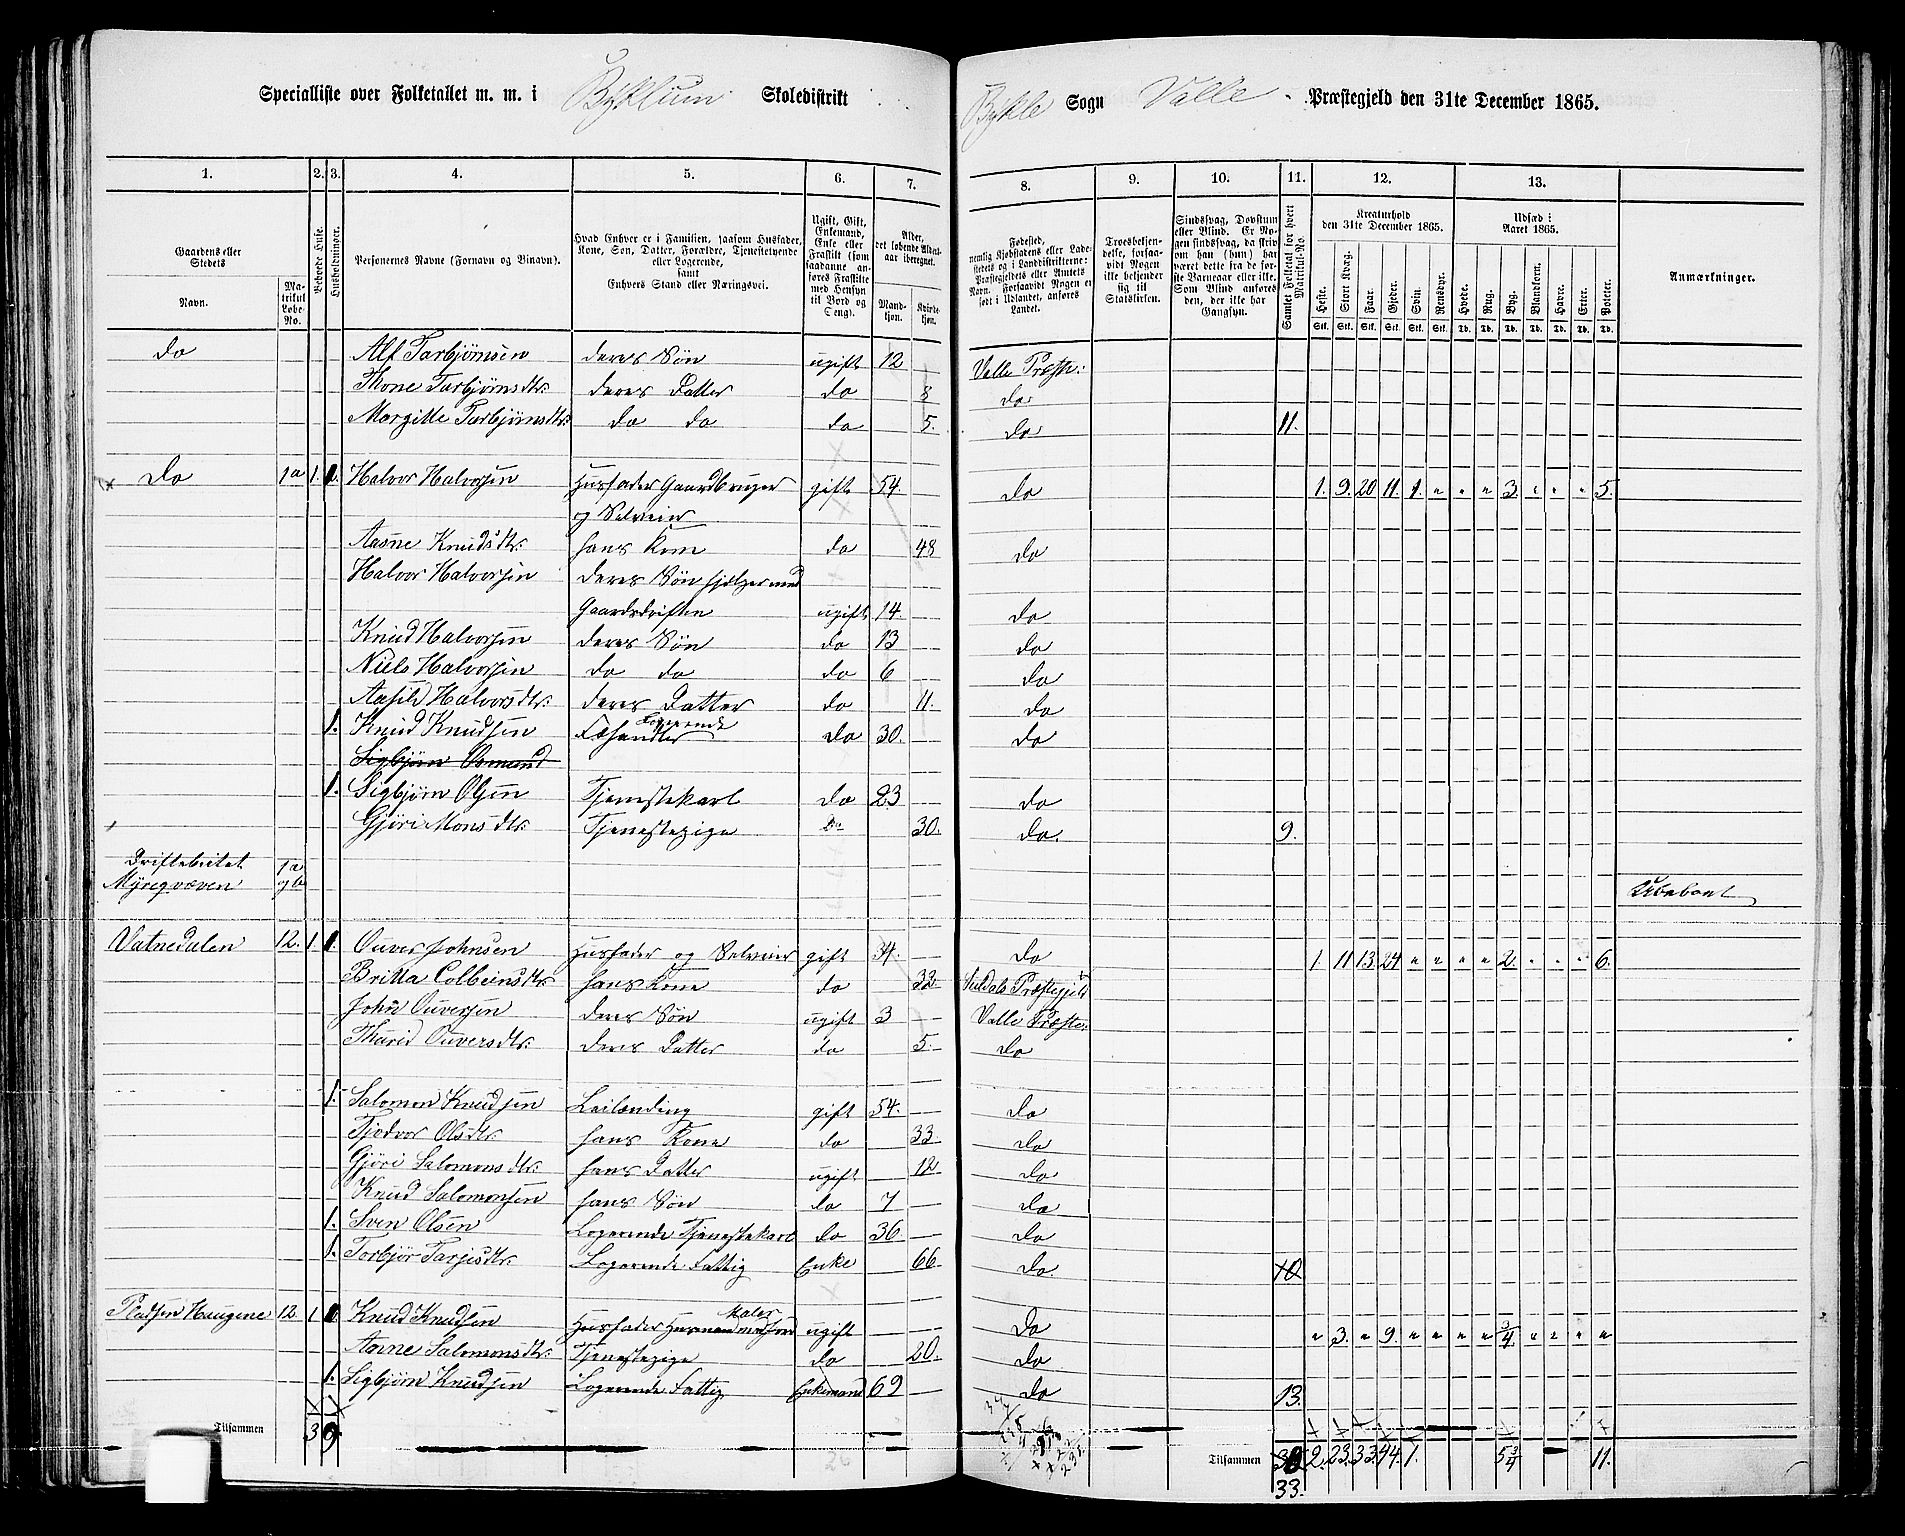 Specialliste over Folketallet m. m. i Byklum Skoledistrikt Bykle Sogn Valle Præstegjeld den 31te December 1865.
1. 2. 3. 4. 5. 6. 7. 8. 9. 10. 11. 12. 13.
Gaardens eller Stedets Navn. Matrikul Løbe-No. Beboede Huse. Husholdninger. Personernes Navne (Fornavn og Tilnavn). Hvad Enhver er i Familien, saasom Husfader, Kone, Søn, Datter, Forældre, Tjenestetyende eller Logerende, samt Enhvers Stand eller Næringsvei. Ugift, Gift, Enkemand, Enke eller Fraskilt (som saadanne anføres Fraskilte med Hensyn til Bord og Seng). Alder, det løbende Aldersaar iberegnet. Mandkjøn. Kvindekjøn.
Fødested, nemlig Kjøbstadens eller Ladestedets og i Landdistrikterne: Præstegjeldets eller Amtets Navn. Forsaavidt Nogen er født i Udlandet, anføres Landet. Troesbekjendelse, forsaavidt Nogen ikke bekjender sig til Statskirken. Sindssvag, Døvstum eller Blind. Er Nogen sindssvag, da skrives om han (hun) har været dette fra de første Barneaar eller ikke. Som Blind anføres den, der ikke har Gangsyn. Samlet Folketal for hvert Matrikul-No. Kreaturhold den 31te December 1865. Udsæd i Aaret 1865. Anmærkninger.
Heste. Stort Kvæg. Faar. Gjeder. Svin. Rensdyr. Hvede. Rug. Byg. Blandkorn. Havre. Erter. Poteter.
Stk. Stk. Stk. Stk. Stk. Stk. Td. Td. Td. Td. Td. Td. Td.
do Alf Tarbjørnsen deres Søn ugift 12 Valle Præste:
Thone Tarbjørnsdtr: deres Datter do 8 do
Margitte Tarbjørnsdtr: do do do 5. do 11.
do 1a 1. 1. Halvor Halvorsen Husfader Gaardbruger gift 54. do 1. 9. 20 11. 1. " " " 3. " " " 5.
og Selveier
Aasne Knudsdtr. hans Kone do 48 do
Halvor Halvorsen deres Søn hjelper med
Gaardsdriften ugift 14. do
Knud Halvorsen deres Søn do 13 do
Niels Halvorsen do do do 6 do
Aasild Halvorsdtr: deres Datter do 11. do
1. Knud Knudsen Logerende Fæhandler do 30. do
Sigbjørn Osmund
1. Sigbjørn Olsen Tjenestekarl do 23 do
Gjøri Monsdtr. Tjenestepige do 30. do. 9.
Driftebeitet 1a
Myregvæven og b Ubeboet
Vatnedalen 12. 1. 1. Ouver Johnsen Husfader og Selveier gift 34. do 1. 11 13. 24 " " " " 2. " " " 6.
Britta Colbeinsdtr. hans Kone do 32 Suldals Præstegjeld
John Ouversen deres Søn ugift 3 Valle Præste:
Thurid Ouversdtr: deres Datter do 5. do
1. Salomon Knudsen Leilænding gift 54. do
Tjodvor Olsdtr. hans Kone do 33 do
Gjøri Salomonsdtr. hans Datter ugift 12 do
Knud Salomonsen hans Søn do 7 do
1. Sven Olsen Logerende Tjenestekarl do 36 do
1. Torbjør Tarjesdtr. Logerende Fattig Enke 66 do. 10
Pladsen Haugene 12 1 1 Knud Knudsen Husfader Maler ugift do " 3. " 9. " " " " 3/4 " " " "
Aanne Salomonsdtr: Tjenestepige do 20. do
1. Sigbjørn Knudsen Logerende Fattig Enkemand 69 do 13.
Tilsammen 3 9
Tilsammen 30 2. 23. 33. 44. 1. 5 3/4 11.
33.